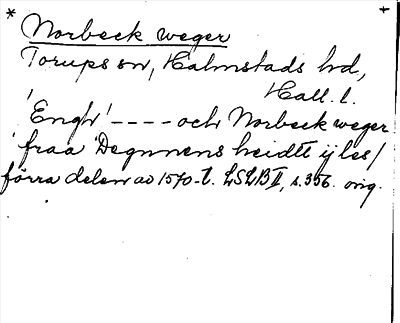 * Norbeck weger +
Torups sn, Halmstads hd,
Hall. l.
'Engh' ---- och Norbeck weger
fraa Degnnens heidtt ij les/
förra delen av 1570-t. LSLB II, s. 356. orig.